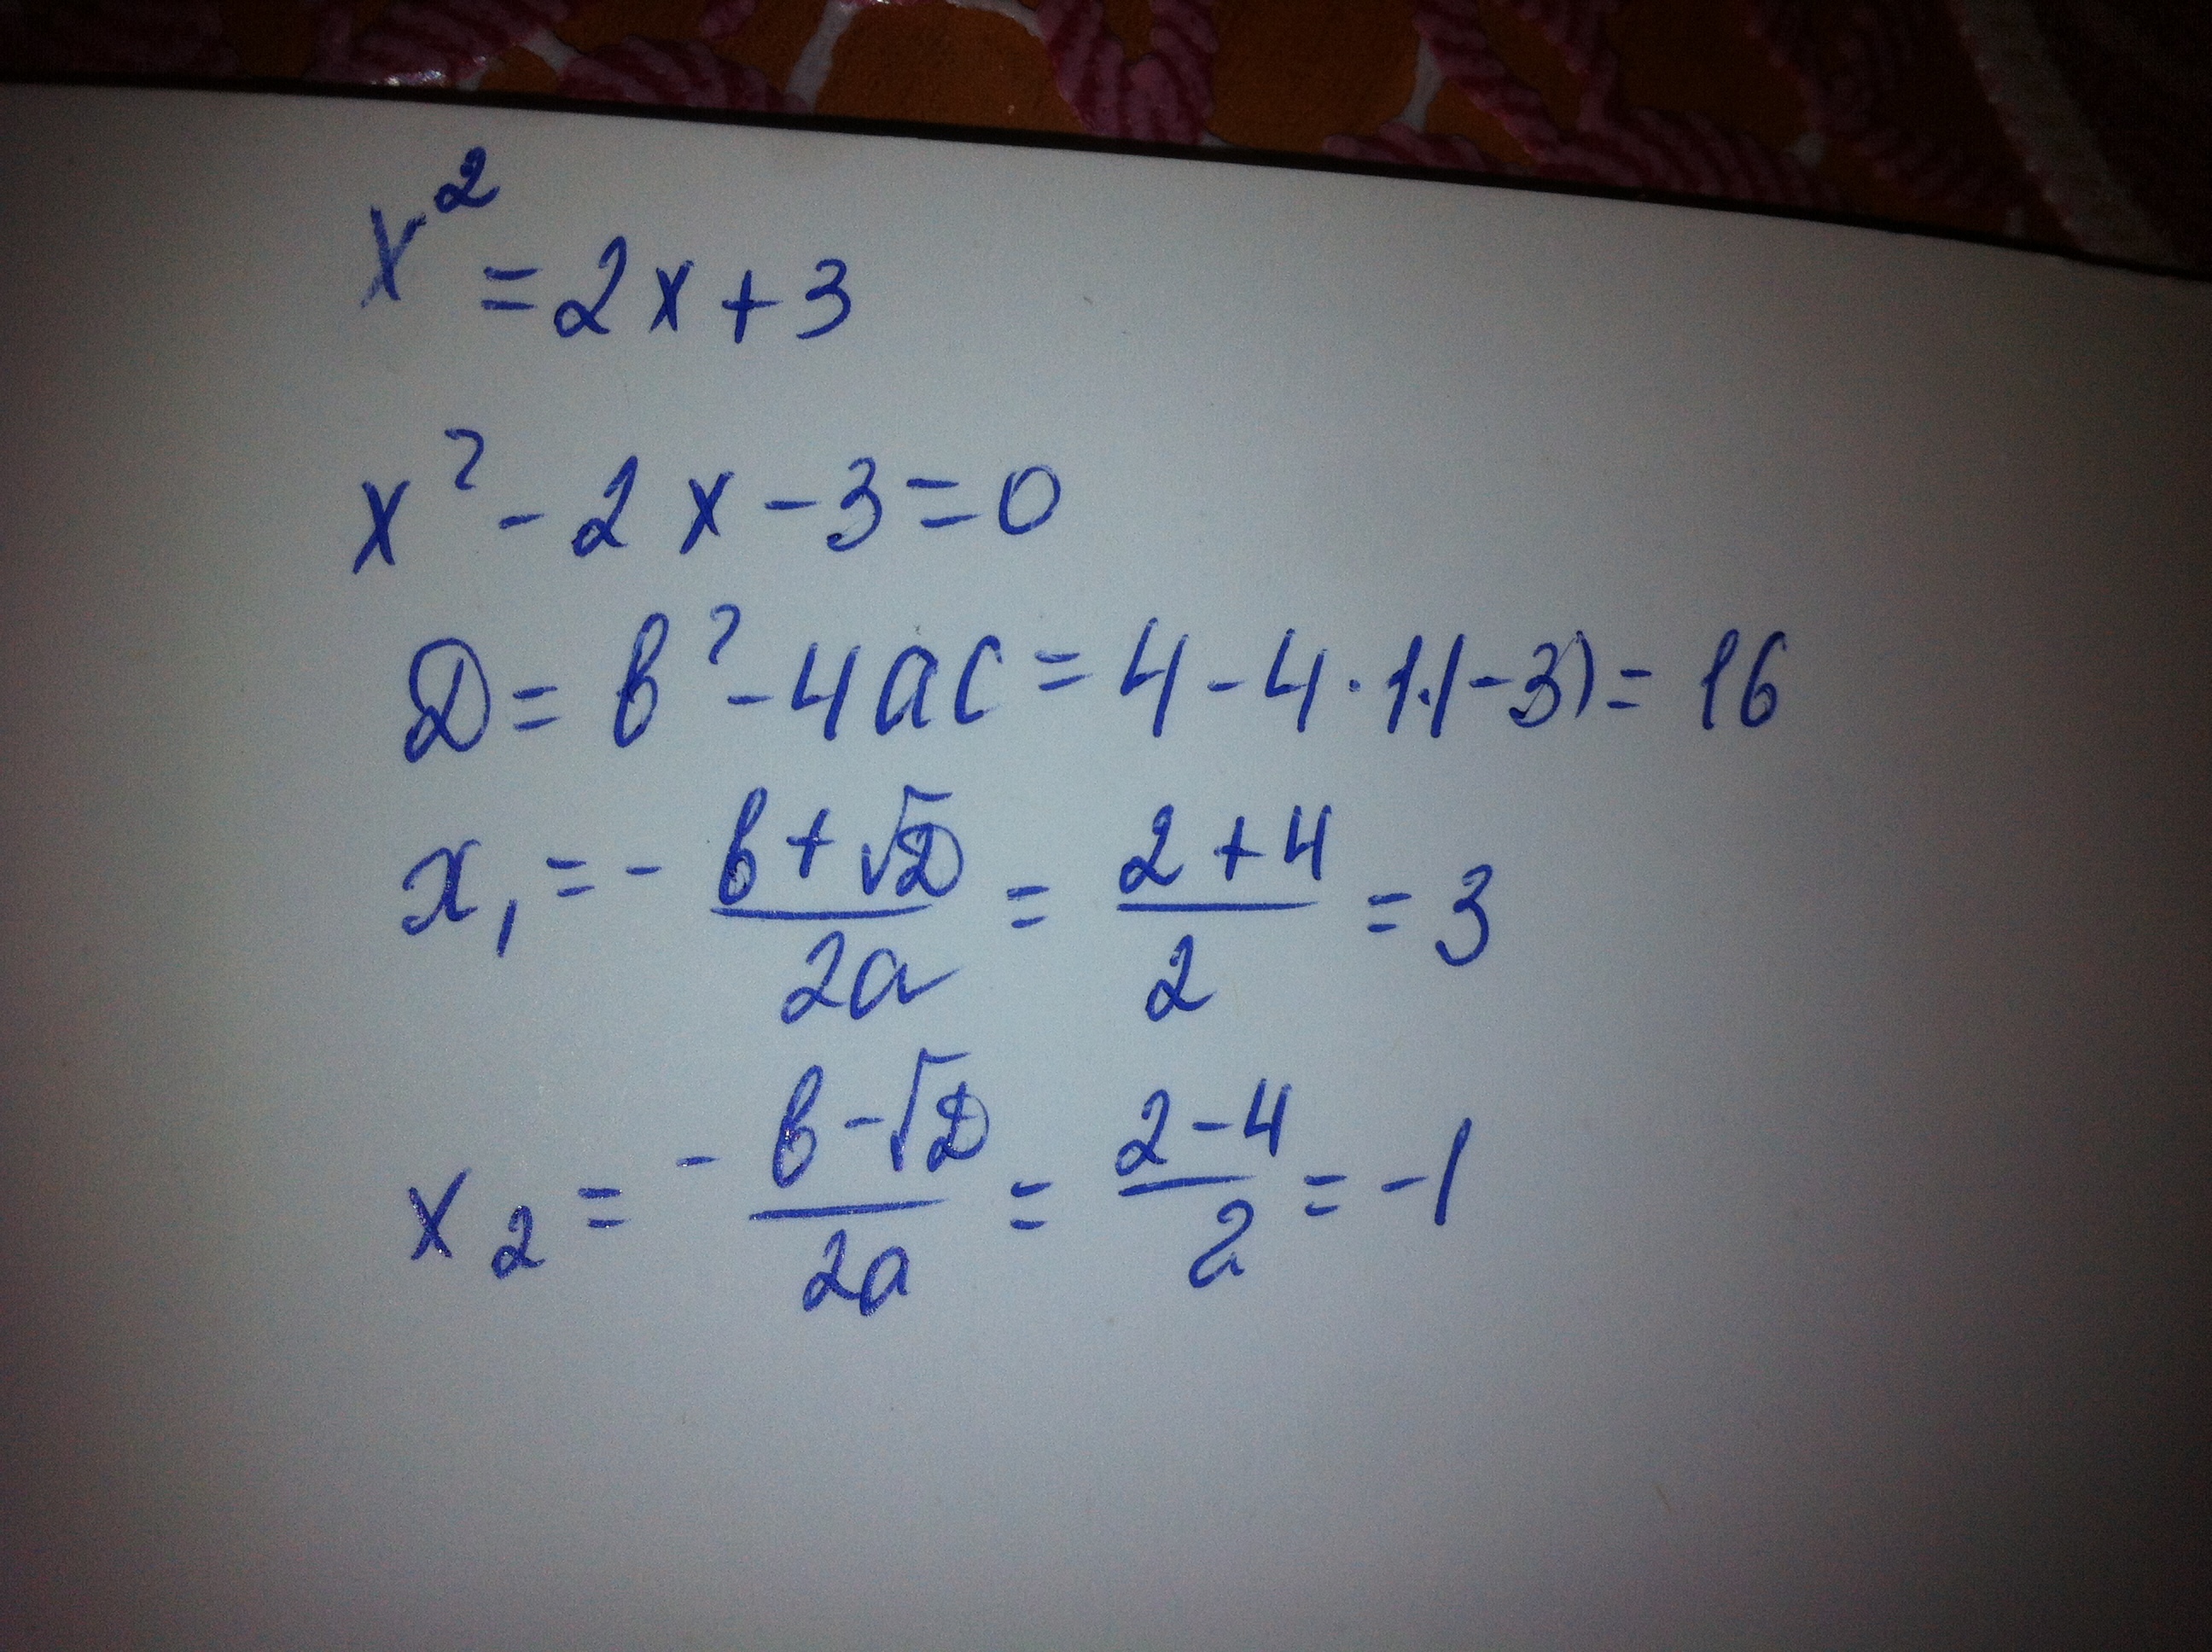 x² = 2x + 3
x² - 2x - 3 = 0
D = b² - 4ac = 4 - 4 · 1 · (-3) = 16
x₁ = - b + √D / 2a = 2 + 4 / 2 = 3
x₂ = - b - √D / 2a = 2 - 4 / 2 = -1